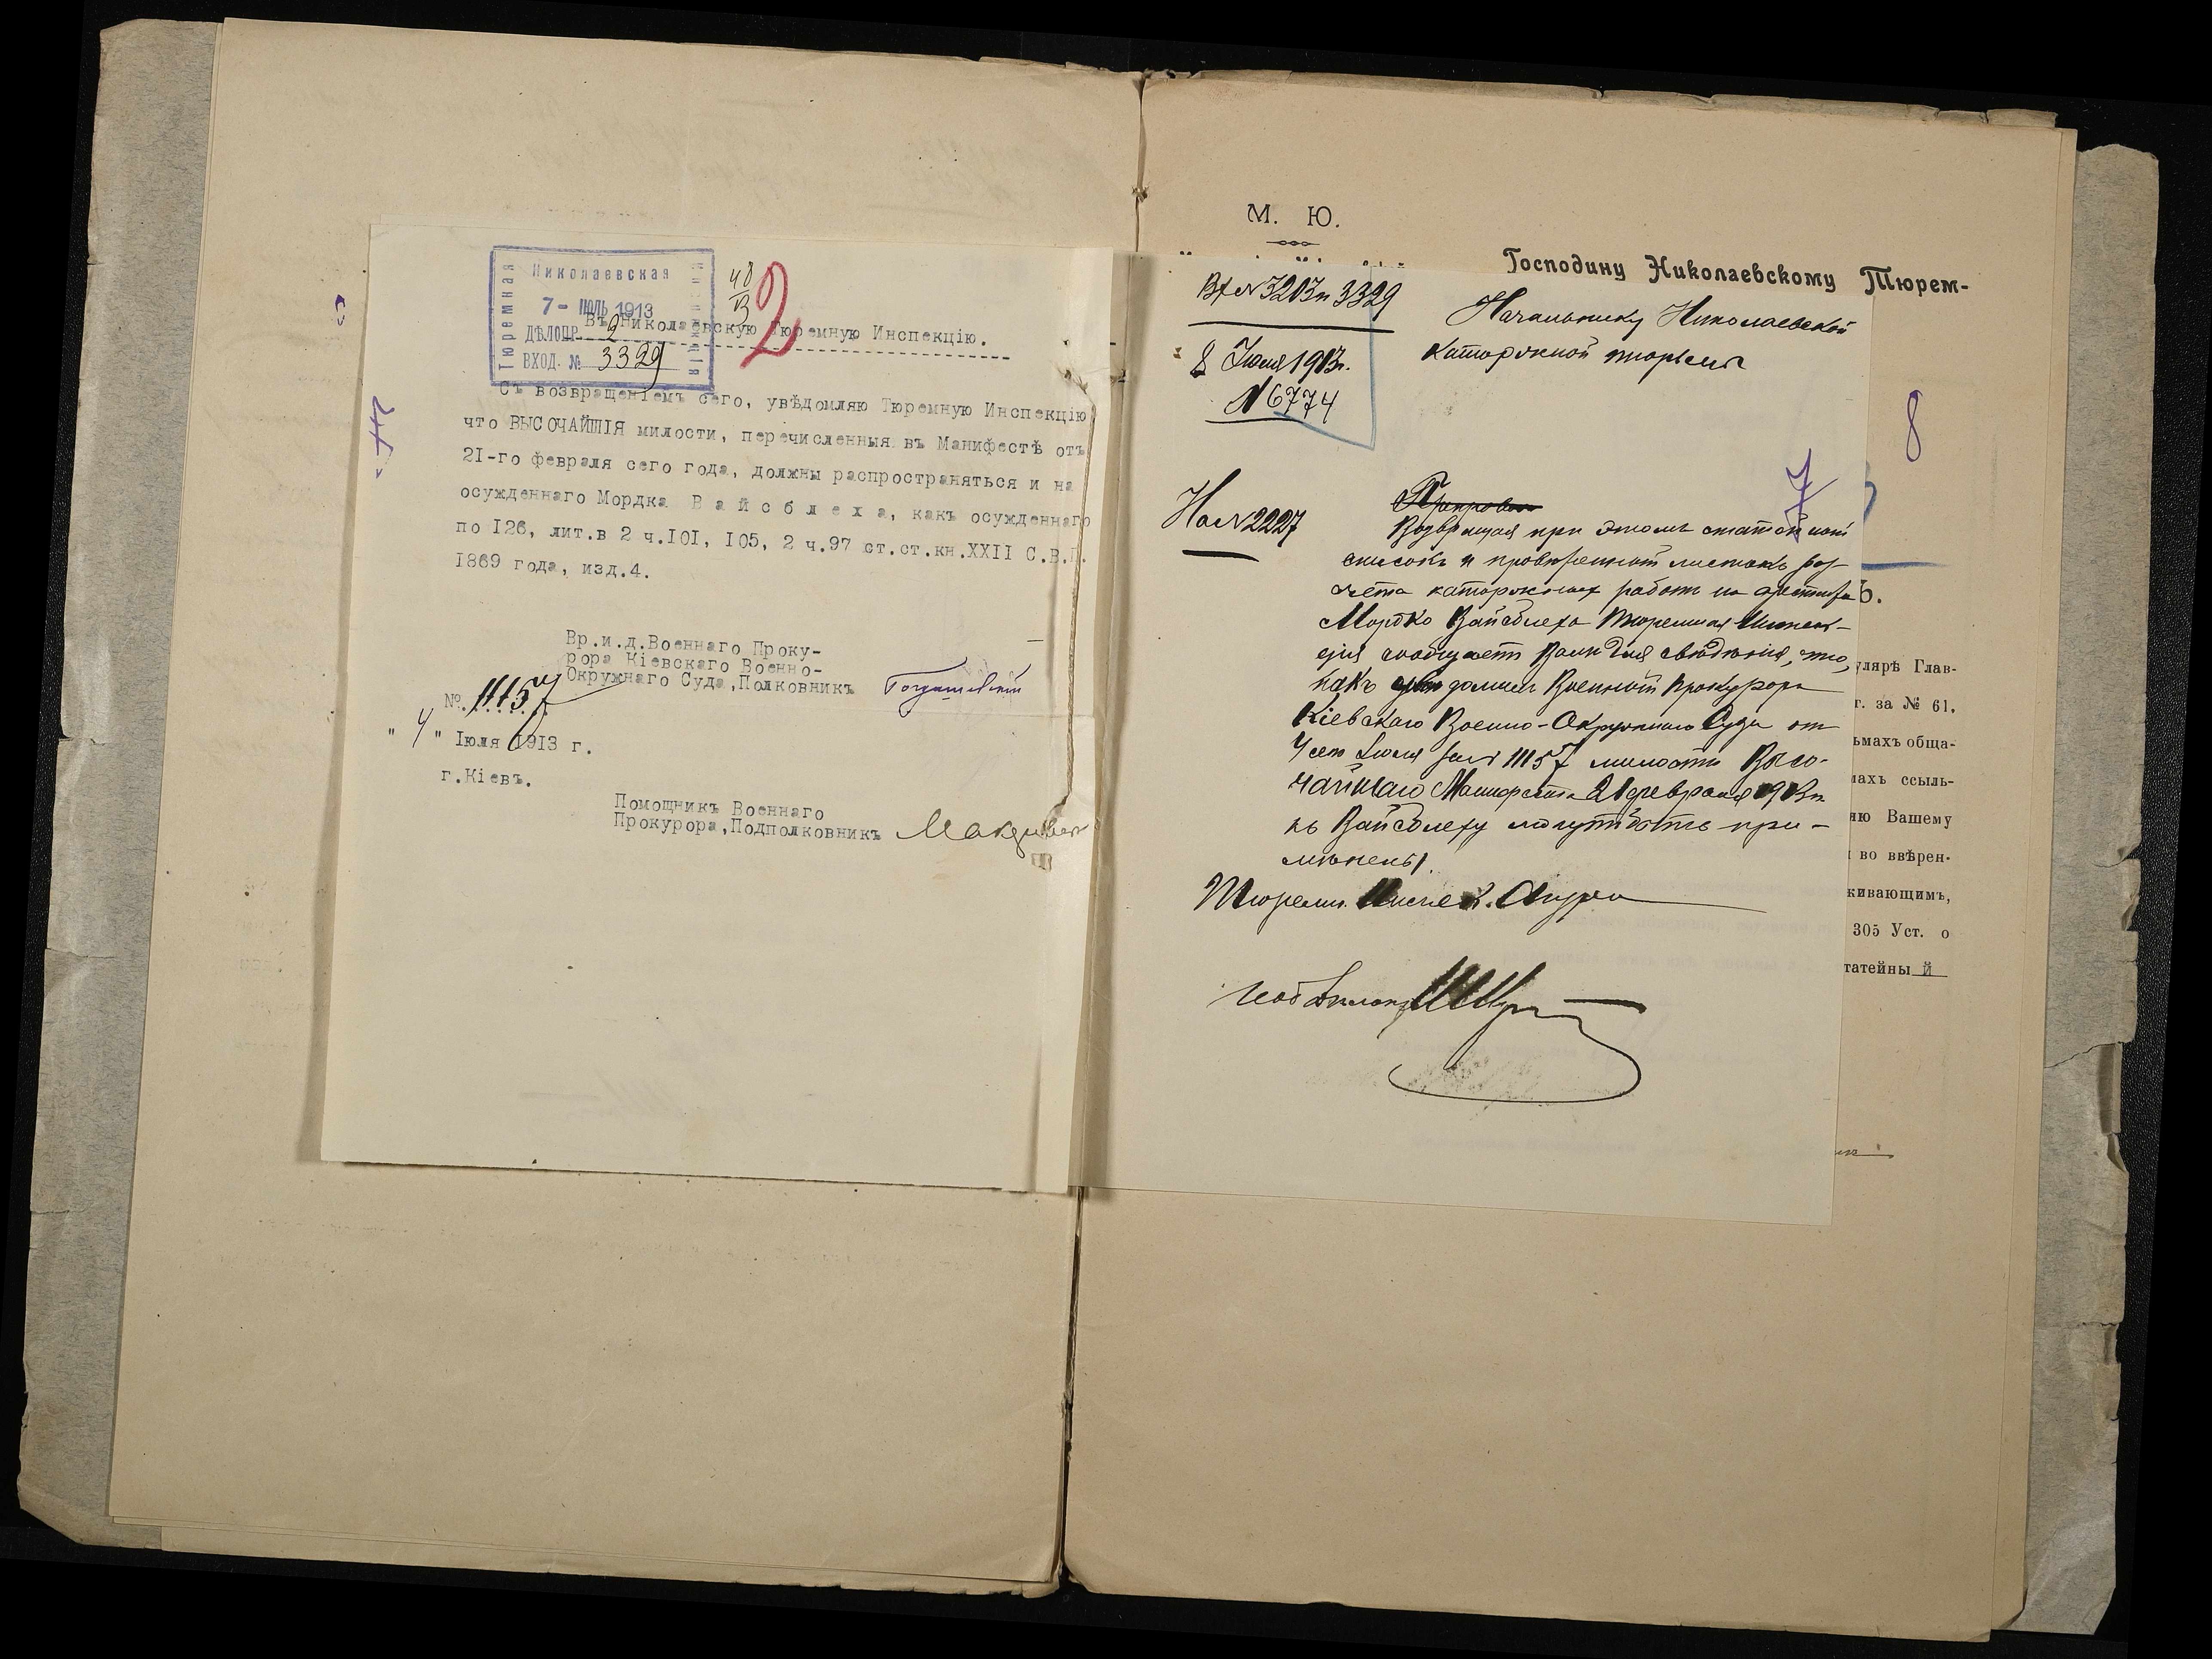 Николаевская
Тюремная
7- ІЮЛЬ 1913
ДѢЛОПР. 2
ВХОД. № 3329
48
В
2
Въ Николаевскую Тюремную Инспекцію.
Съ возвращеніемъ сего, увѣдомляю Тюремную Инспекцію
что ВЫСОЧАЙШІЯ милости, перечисленныя въ Манифестѣ отъ
21-го февраля сего года, должны распространяться и на
осужденнаго Мордка Вайсблеха, какъ осужденнаго
по 126, лит.в 2 ч.101, 105, 2 ч.97 ст.ст.кн.XXII С.В.П.
1869 года, изд.4.
Вр.и.д.Военнаго Проку-
рора Кіевскаго Военно-
Окружнаго Суда,Полковникъ
№ 11157
" 4 " Іюля 1913 г.
г.Кіевъ.
Помощникъ Военнаго
Прокурора,Подполковникъ
М. Ю.
Господину Николаевскому Тюрем-
Вх №3203 и 3329
8 Іюля 1913г.
№6774
Начальнику Николаевской
каторжной тюрьмы
7
8
На №2227
Возвращая при этомъ статейный
списокъ и провѣренный листокъ раз-
чета каторжныхъ работъ на арестанта
Мордко Вайсблеха Тюремная Инспек-
ція сообщаетъ Вамъ для свѣдѣнія, что,
какъ увѣдомилъ Военный Прокуроръ
Кіевскаго Военно-Окружного Суда отъ
4 сего Іюля за № 11157 милости Высо-
чайшаго Манифеста 21 февраля 1913г.
къ Вайсблеху могутъ быть при-
мѣнены.
Тюремн. Инспек.
ъ.
улярѣ Глав-
г. за № 61,
ьмахъ обща-
махъ ссыль-
нію Вашему
и во ввѣрен-
живающимъ,
305 Уст. о
татейны й